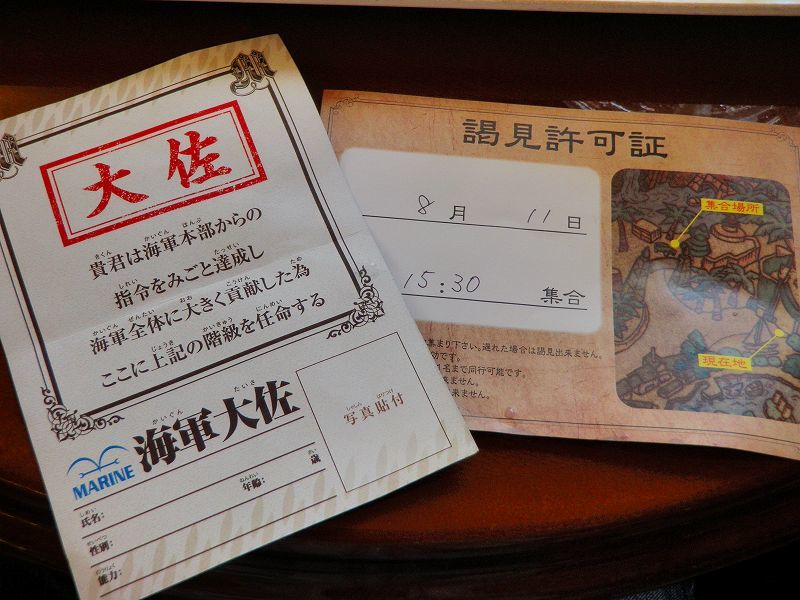 大佐
貴君は海軍本部からの
指令をみごと達成し
海軍全体に大きく貢献した為
ここに上記の階級を任命する
海軍大佐
MARINE
写真貼付
氏名:
年齢: 歳
性別:
能力:
謁見許可証
8月 11日
15:30 集合
集合場所
現在地
集まり下さい。遅れた場合は謁見出来ません。
効です。
1名まで同行可能です。
来ません。
来ません。